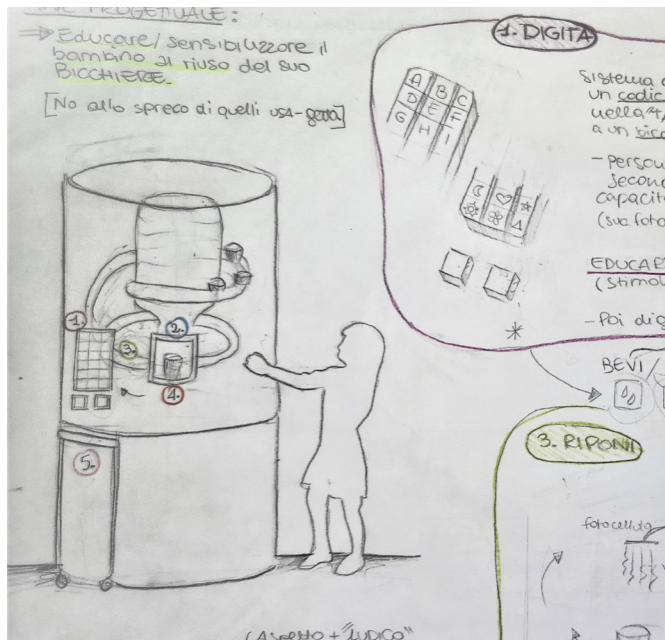 PROGETTUALE:
⇒ Educare/sensibilizzare il
bambino al riuso del suo
BICCHIERE.
[No allo spreco di quelli usa-getta]
1. DIGITA
A B C
D E F
G H I
Sistema
un codic
nella
a un bicc
- person
secon
capacit
(sua foto
EDUCA
(stimol
- Poi dig
*
BEVI/
1.
2.
3.
4.
5.
3. RIPONI
fotocellula
(Aspetto + "LUDICO"